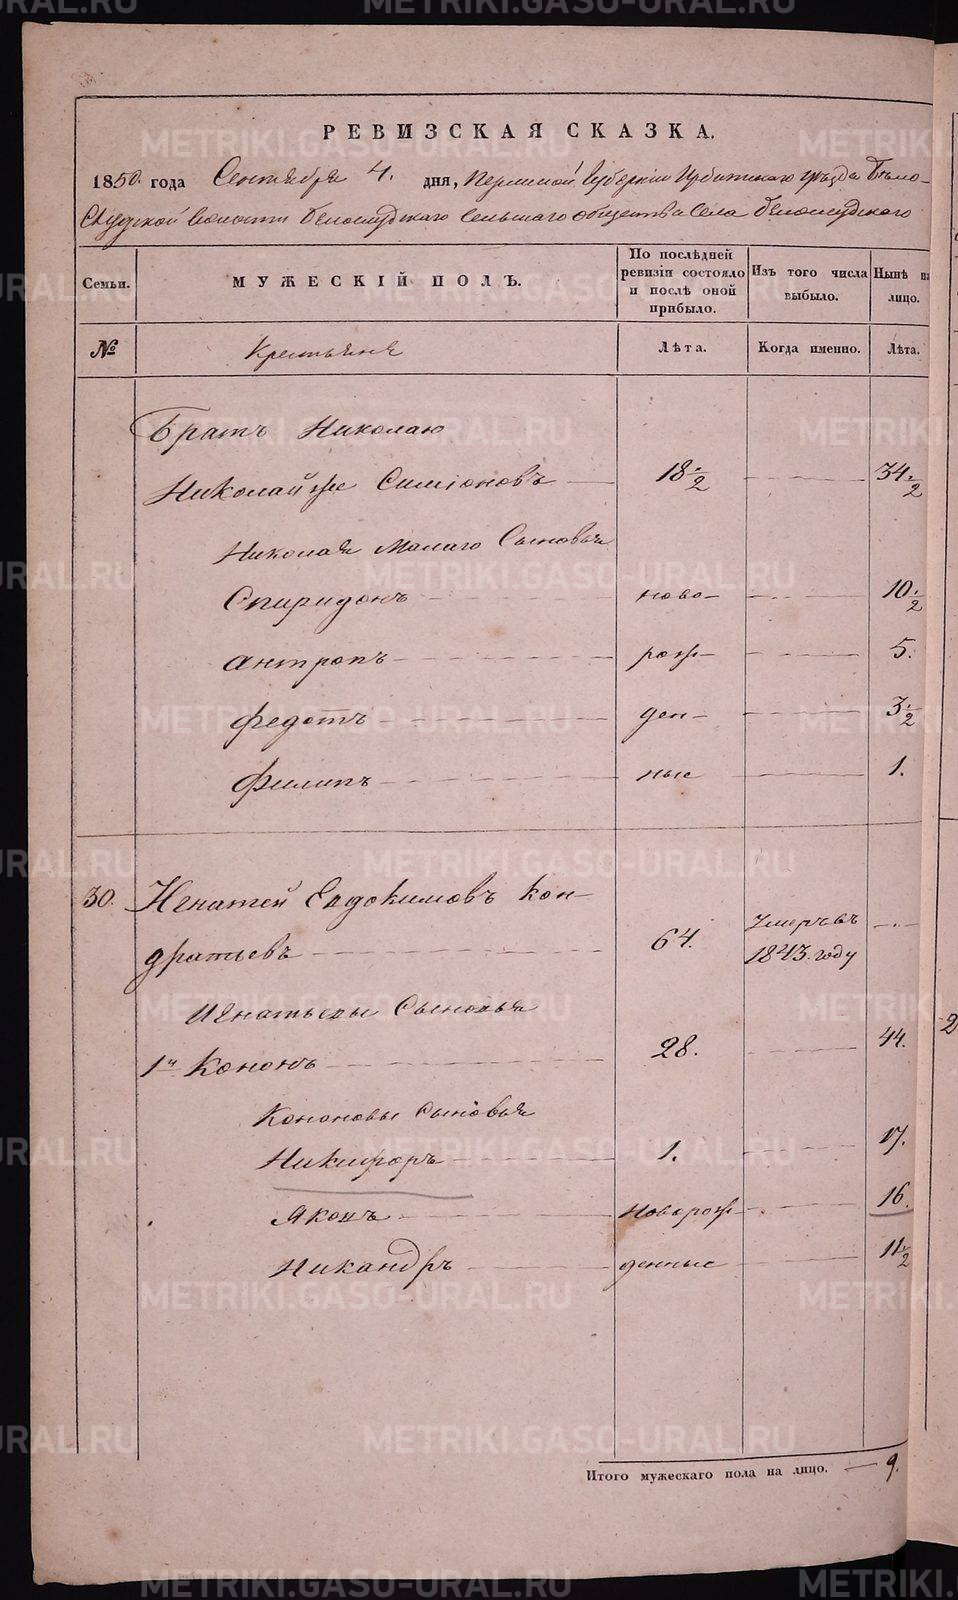 РЕВИЗСКАЯ СКАЗКА.
1850. года Сентября 4. дня, Пермской Губернии Ирбитскаго уѣзда Бѣло-
слудской волости Белослудскаго сельскаго общества села Белослудскаго
Семьи. МУЖЕСКІЙ ПОЛЪ. По послѣдней ревизіи состояло и послѣ оной прибыло. Изъ того числа выбыло. Нынѣ на лицо.
№ Крестьяне Лѣта. Когда именно. Лѣта.
Братъ Николаю
Николай же Симіоновъ 18 1/2 34 1/2
Николая Малаго Сыновья
Спиридонъ ново- 10 1/2
Антропъ рож- 5.
Федотъ ден- 3 1/2
Филипъ ные 1.
30. Игнатей Евдокимовъ Кон-
дратьевъ 64. Умеръ въ 1843. году
Игнатьевы Сыновья
1й Кононъ 28. 44.
Кононовы Сыновья
Никифоръ 1. 17.
Яковъ Новорож- 16.
Никандръ денные 11 1/2
Итого мужескаго пола на лицо. 9.
METRIKI.GASO-URAL.RU